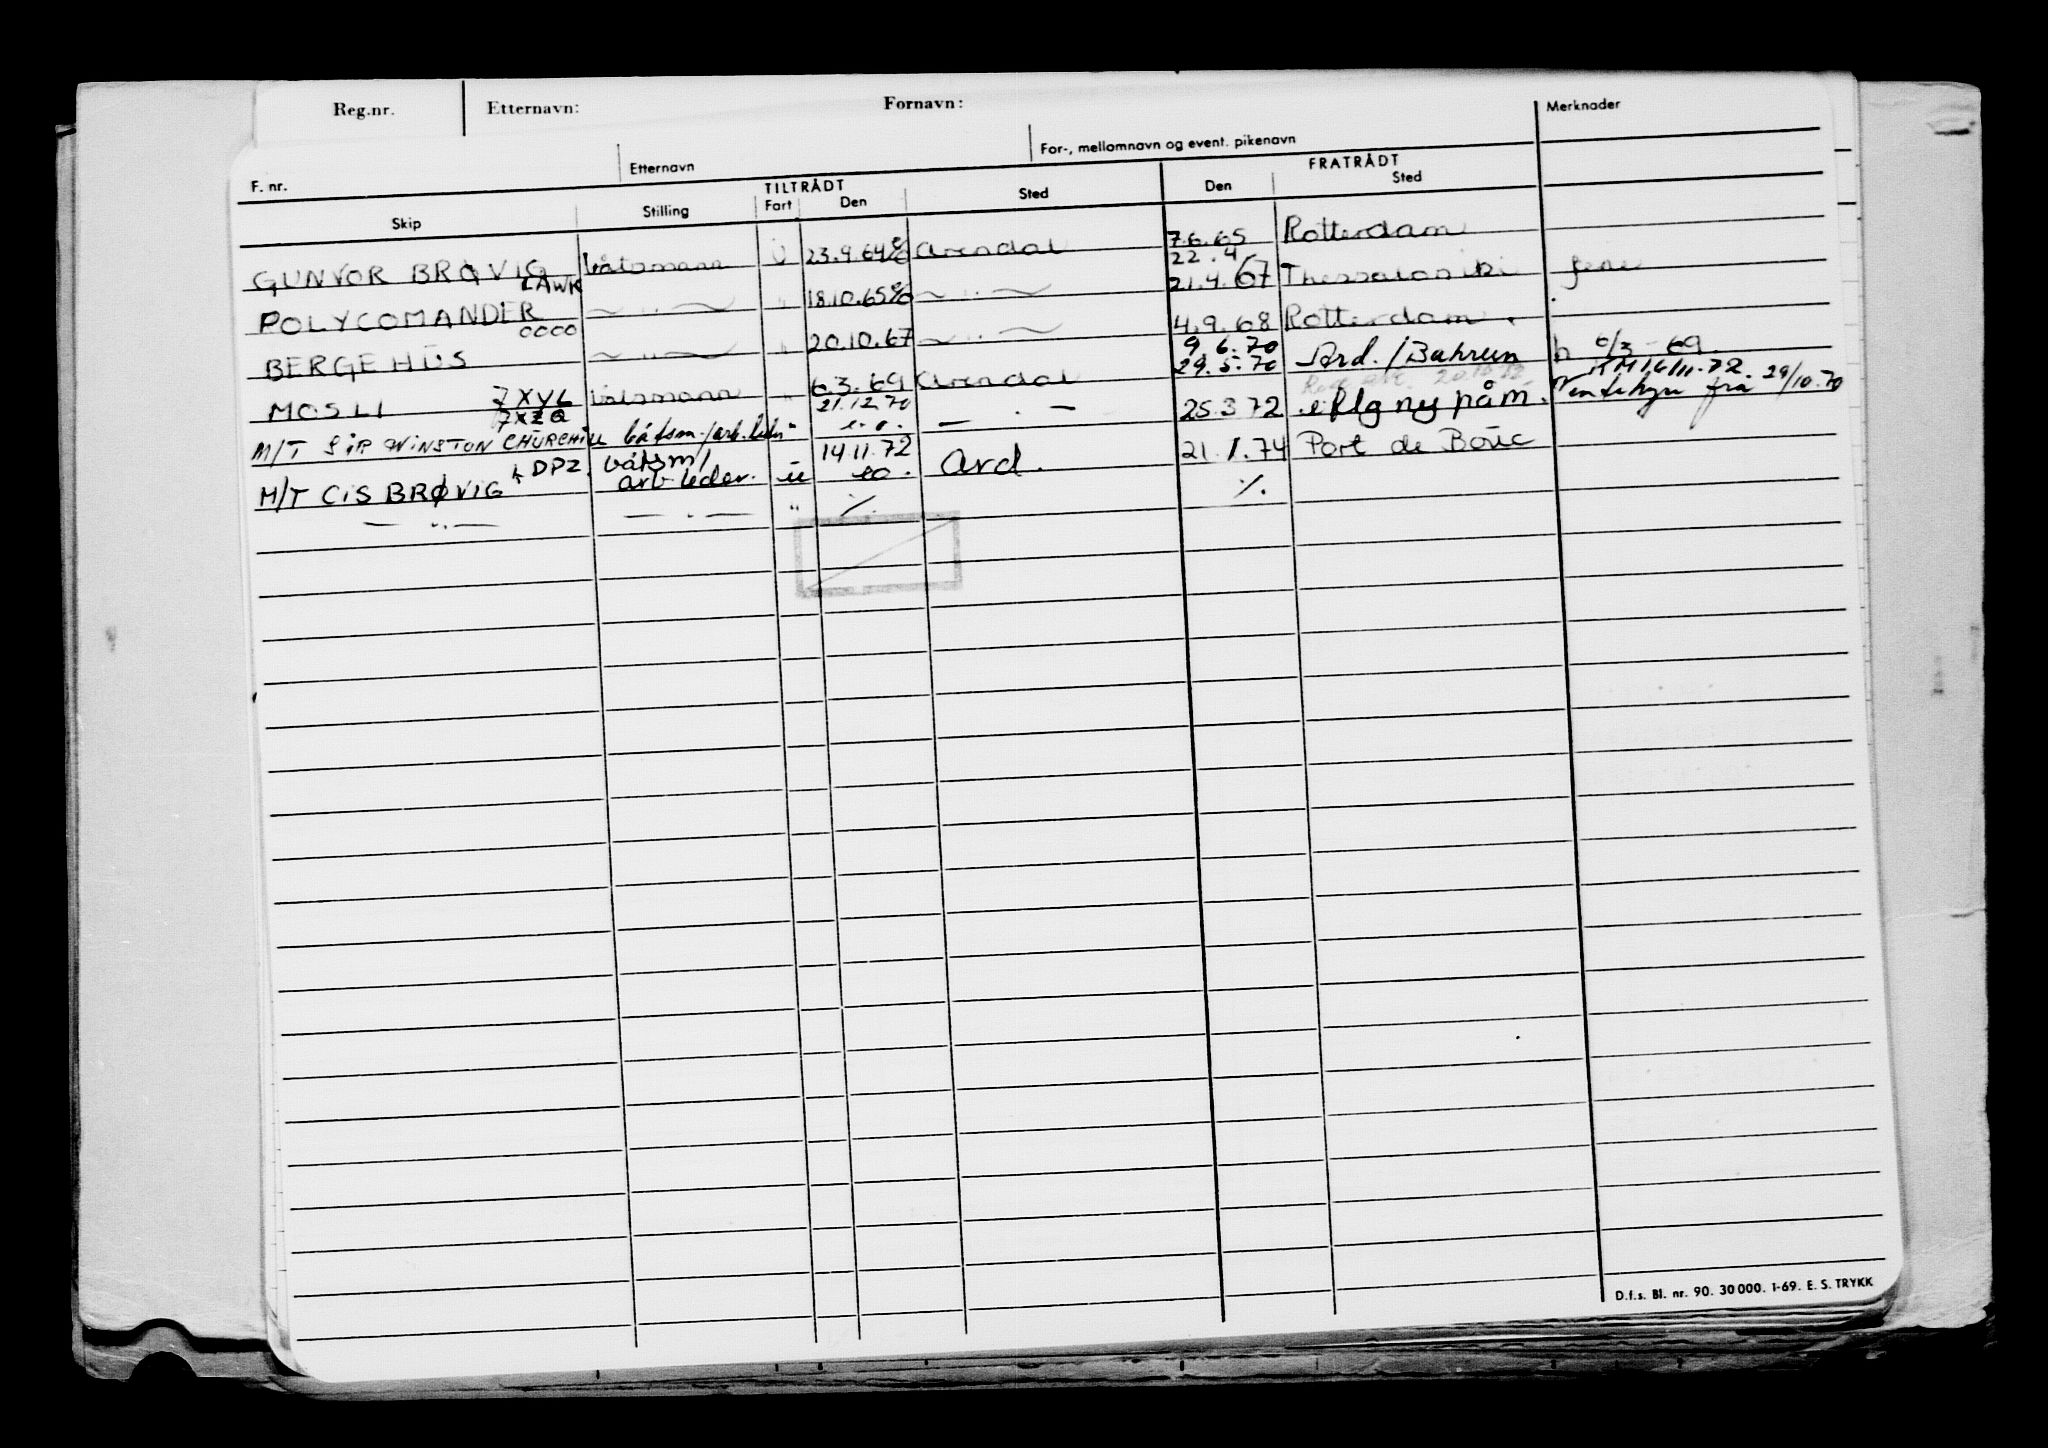 Reg.nr. Etternavn: Fornavn:
Merknader
F. nr. Etternavn For-, mellomnavn og event. pikenavn
TILTRÅDT FRATRÅDT
Skip Stilling Fart Den Sted Den Sted
GUNVOR BRØVIG båtsmann U 23.9.64 Arendal 7.6.65 Rotterdam
LAWK 22.4
POLYCOMANDER — " — " 18.10.65 — " — 21.4.67 Thessaloniki ferie
OOOO
BERGEHUS — " — " 20.10.67 — " — 4.9.68 Rotterdam.
7XYL 9.6.70
MOSLI båtsmann " 6.3.69 Arendal 29.5.70 Ard./Bahrein h 6/3-69
7XZQ 21.12.70 16/11.72.
M/T SIR WINSTON CHURCHILL båtsm./arb.leder " e.o. — . — 25.3.72 e flg ny påm. Ventehyre fra 29/10.70
LDPZ. båtsm/ 14.11.72
M/T CIS BRØVIG arb leder. u eo. Ard. 21.1.74 Port de Bouc
— " — — " — " ./. ./.
D.f.s. Bl. nr. 90. 30 000. 1-69. E. S. TRYKK